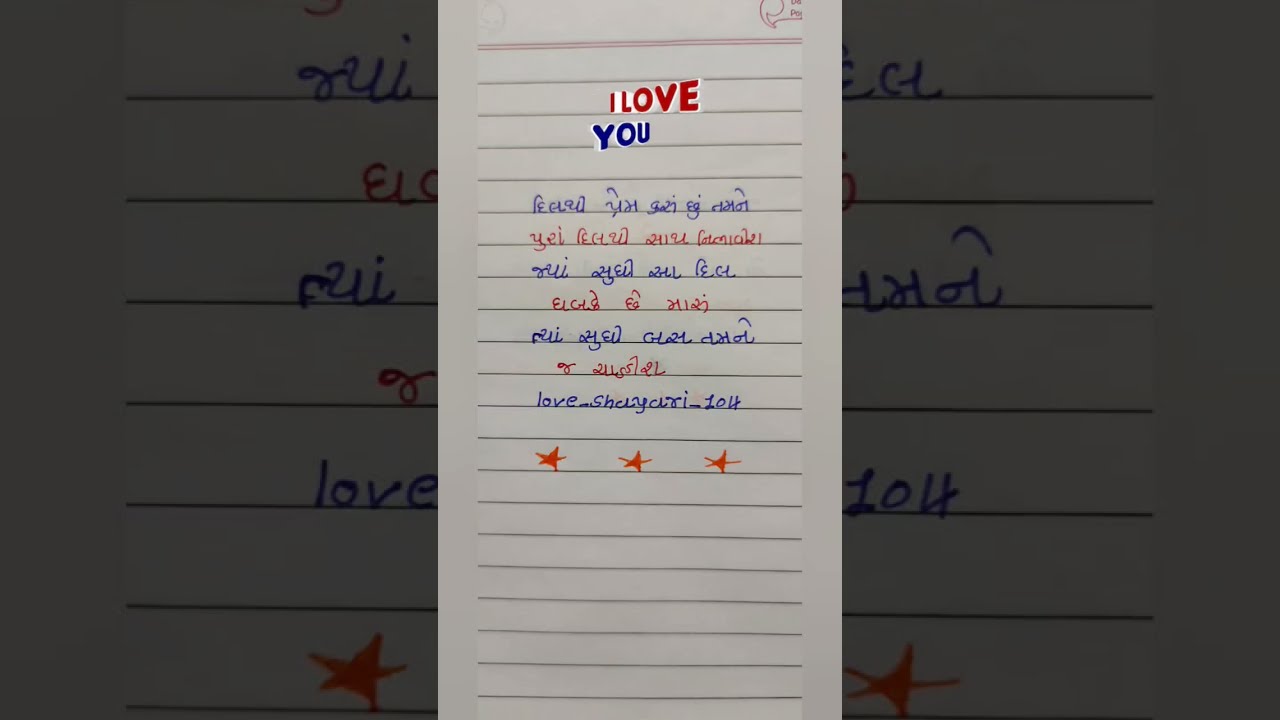 I LOVE
YOU
દિલથી પ્રેમ કરું છું તમને
પુરાં દિલથી સાથ નિભાવીશ
જ્યાં સુધી આ દિલ
ધબકે છે મારું
ત્યાં સુધી બસ તમને
જ ચાહીશ
love_shayari_104